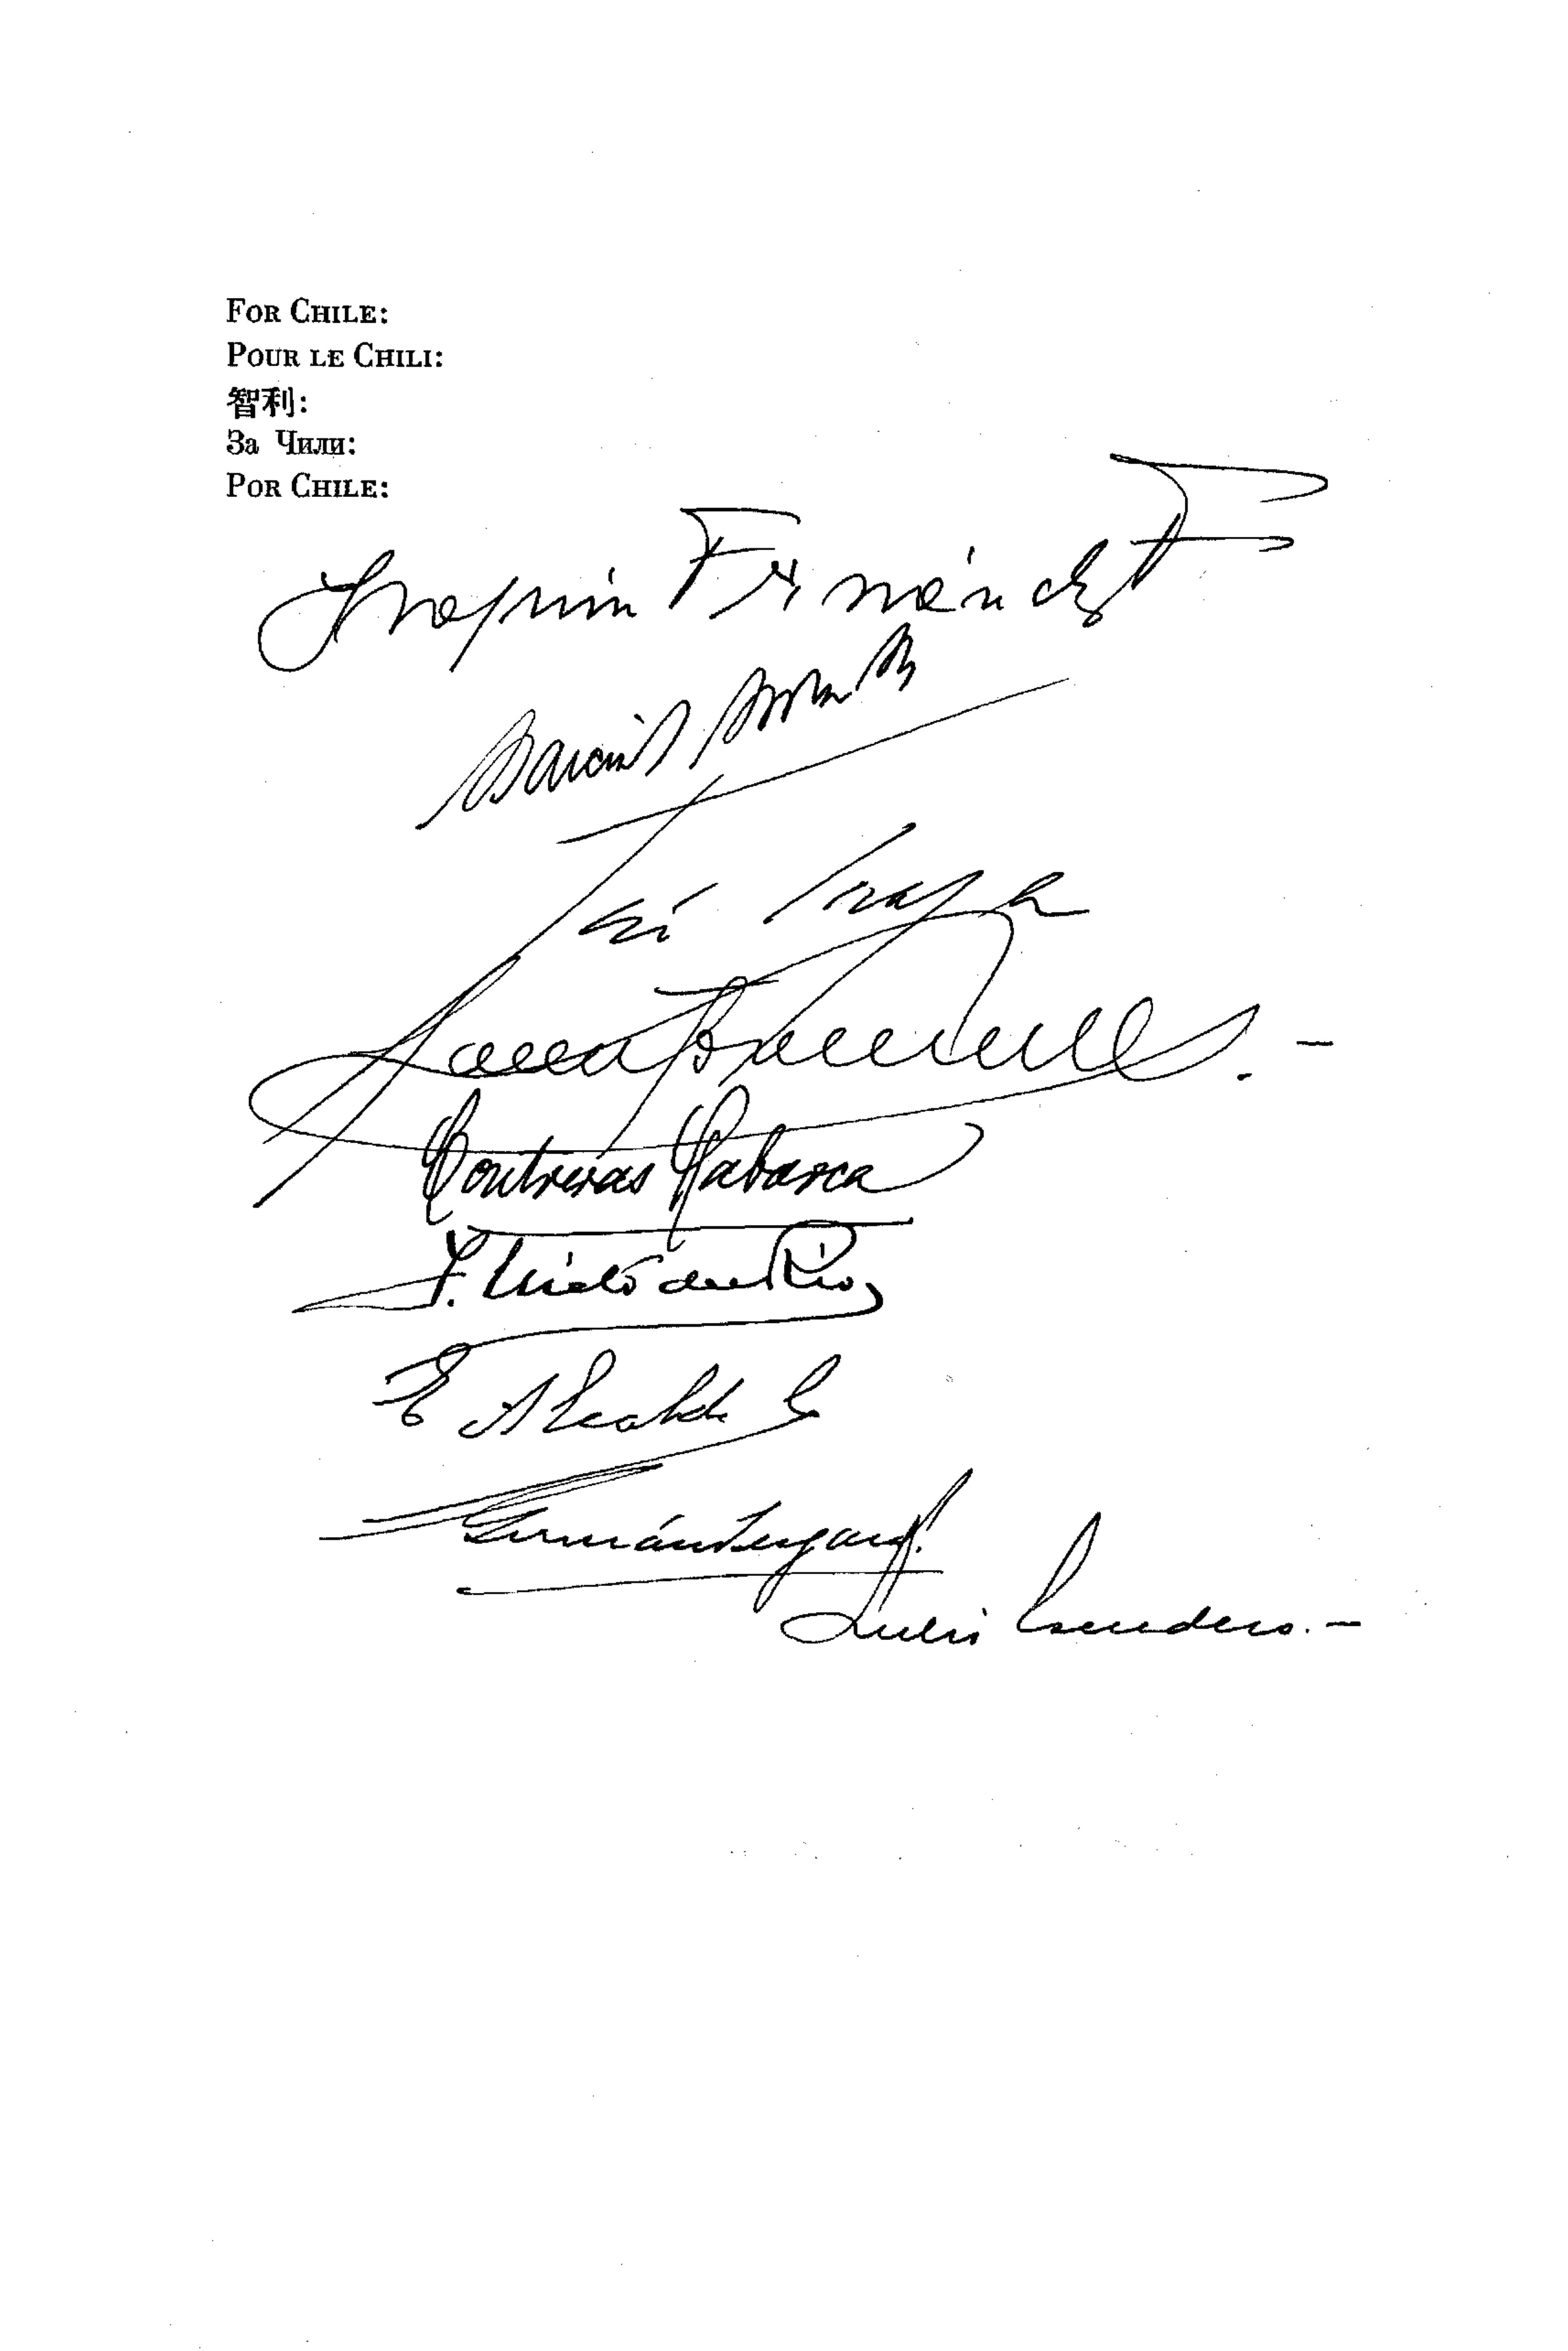 FOR CHILE:
POUR LE CHILI:
智利:
За Чили:
POR CHILE:
Joaquín Fernández F
José Maza
Contreras Labarca
F. Nieto del Río
E Alcalde C
Germán Vergara
Julio Escudero.-